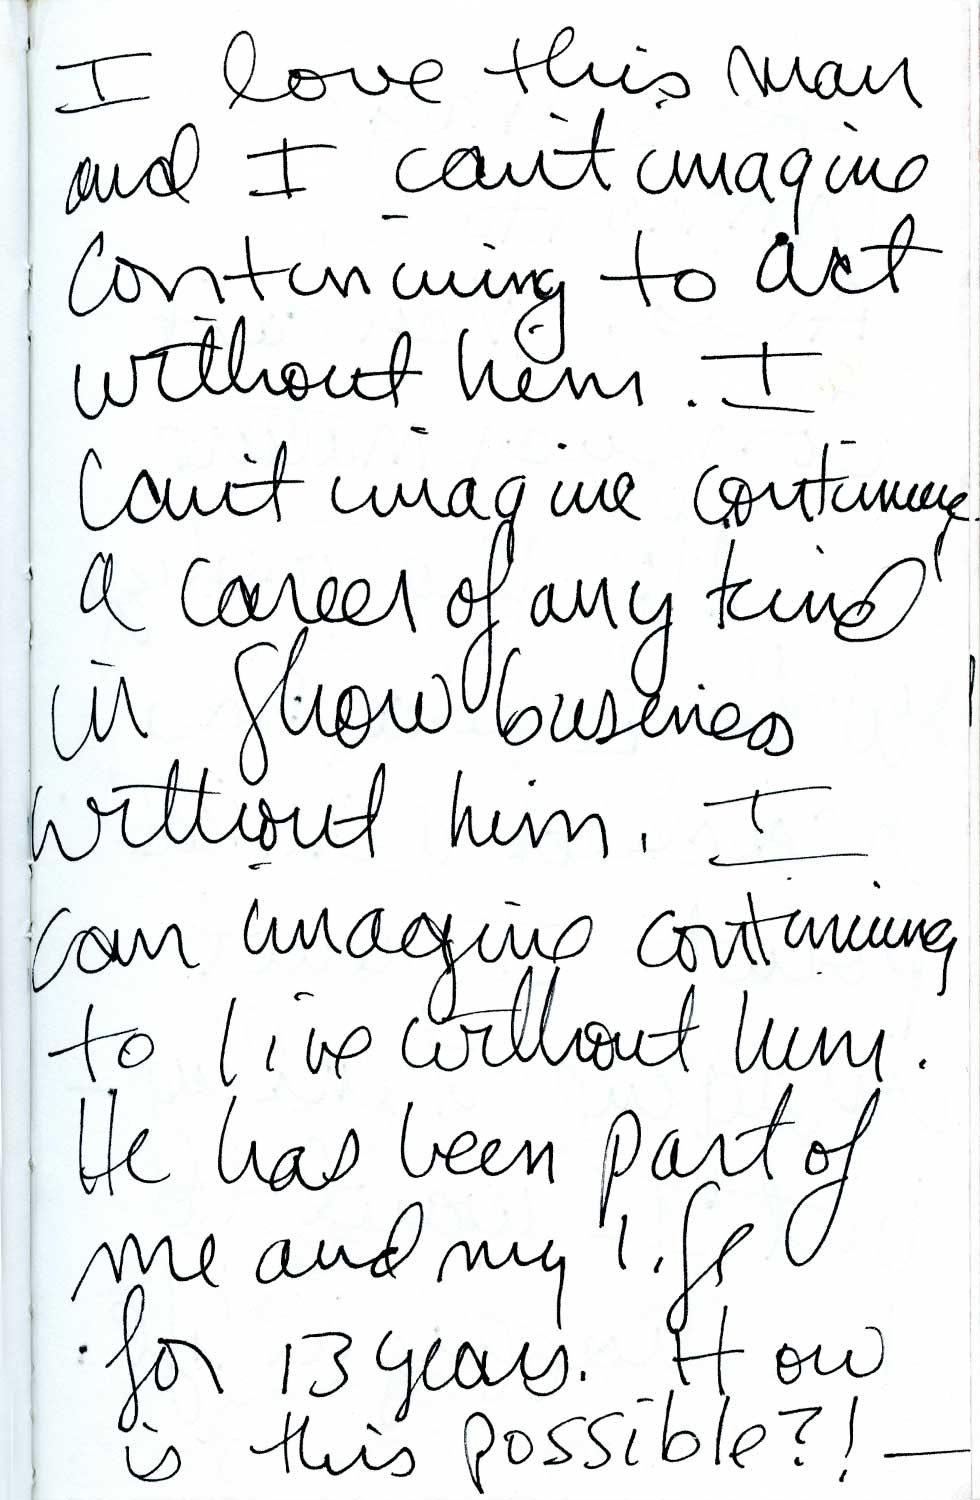 I love this man
and I can't imagine
continuing to act
without him. I
can't imagine continuing
a career of any kind
in show business
without him. I
can imagine continuing
to live without him.
He has been part of
me and my life
for 13 years. How
is this possible?! —